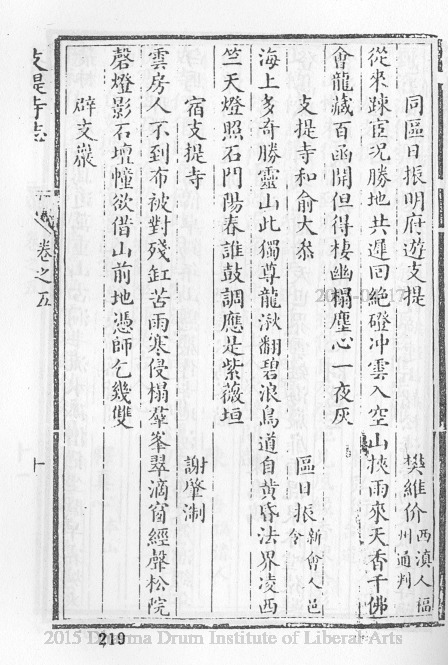 同區日振明府遊支提　樊維价西滇人福州通判
從來踈宦況勝地共遲回絶磴冲雲入空山挾雨來天香千佛
會龍藏百函開但得棲幽榻塵心一夜灰
支提寺和俞大叅　區日振新會人邑令
海上多奇勝靈山此獨尊龍湫翻碧浪鳥道自黄昏法界凌西
竺天燈照石門陽春誰鼓調應是紫薇垣
宿支提寺　謝肇淛
雲房人不到布被對殘缸苦雨寒侵榻羣峯翠滴窗經聲松院
磬燈影石壇幢欲借山前地憑師乞幾雙
辟支巖
支提寺志
卷之五
十
219
2015 Dharma Drum Institute of Liberal Arts